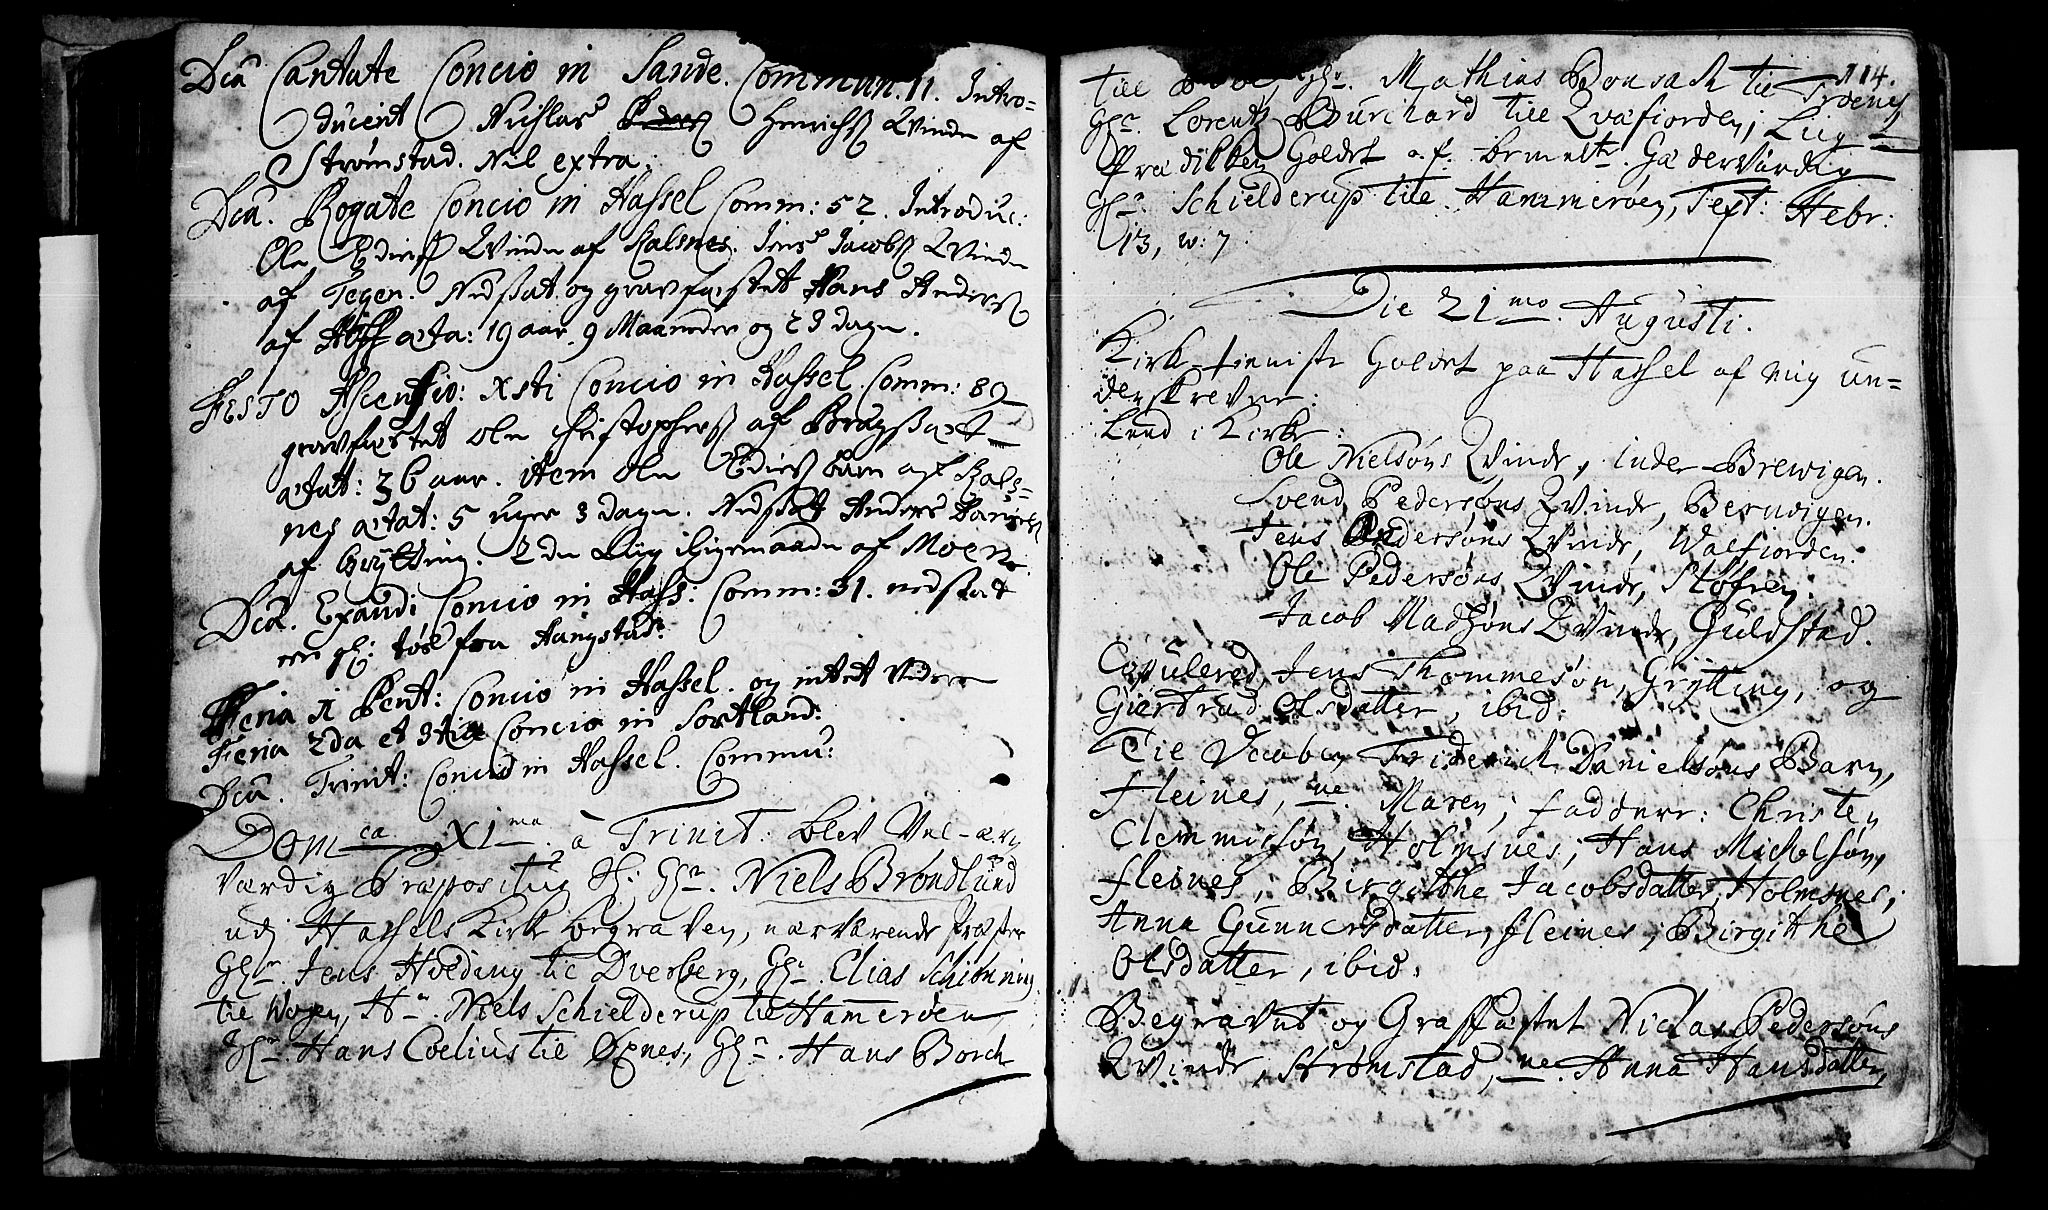 Dca Cantate Concio in Sande. Commun. 11. Intro=
ducerit Nichlas Henrichs Qvinde af
Strømstad. Nil extra:
Dca. Rogate Concio in Hassel Comm: 52. Introduc:
Ole Qvinde af Kalsnes. Jens Jacobs Qvinde
af Tegen. Nedsat og gravfæstet Hans Anders
af æta: 19 aar 9 Maaneder og 23 dage.
FESTO Ascensio: Xsti Concio in Hassel. Comm: 89
gravfæstet Ole Christophers af
ætat: 36 aar. item Ole barn af Kals=
nes ætat: 5 uger 3 dage. Nedsat Anders
af Grytting. 2de Liig af Moen.
Dca. Exaudi Concio in Hass: Comm: 31. nedsat
fra Ringstad:
Feria 1 Pent: Concio in Hassel. og intet videre
Feria 2da et 3tia Concio in Sortland:
Dca. Trinit: Concio in Hassel. Commu:
Domca XIma à Trinit: blev Vel-ær
værdig Præpositus H: Hr. Niels Brøndlund
udj Hassels Kirke begraven, nærværende Præster
Hr. Jens Hveding til Dverberg, Hr. Elias Schiønning
til Wogen, Hr. Niels Schielderup til Hamerøen
Hr. Hans Coelius til Øxnes, Hr. Hans Borch
114.
till Hr. Mathias Bonsach til Troenes
Hr. Lorentz Burchard till Qvæfiorden; Liig
Prædikken holdet af bemelte Hæderværdig
Hr. Schielderup till Hammerøen, Text: Hebr:
13, w: 7
Die 21mo Augusti.
Kirke-tieniste holdet paa Hassel af mig un=
derskrevne:
Leed i Kirke:
Ole Nielsøns Qvinde, inder Brewigen.
Svend Pedersøns Qvinde, Berwigen.
Jens Andersøns Qvinde, Walfiorden.
Ole Pedersøns Qvinde,
Jacob Madsøns Qvinde, Guldstad.
Copulered Jens Thommesøn, Grytting, og
Giertrud Olsdatter, ibid:
Til Daaben, Friderich Danielsøns Barn,
fleines, ne. Maren; fadderr: Christen
Clemmissøn, Holmsnes; Hans Michelsøn,
fleines, Birgithe Jacobsdatter, Holmsnes;
Anna Gunnersdatter, fleines; Birgithe
Olsdatter, ibid.
Begravet og Graffæstet Niclas Pedersøns
Qvinde, Strømstad, ne. Anna Hansdatter,